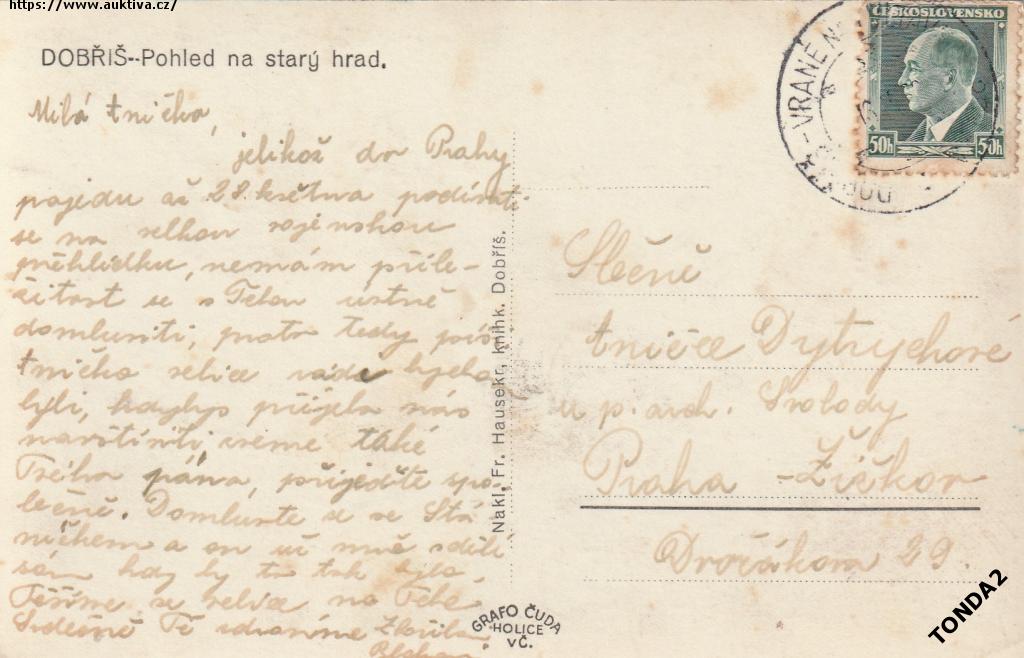 https://www.auktiva.cz/
DOBŘIŠ--Pohled na starý hrad.
Milá Aničko,
jelikož do Prahy
pojedu až 28. května podívati
se na velkou vojenskou
přehlídku, nemám příle-
žitost se s Tebou ústně
domluviti, proto tedy píši
Aničko velice rádi bychom
byli, kdybys přijela nás
navštíviti, víme také
Tvého pána, přijeďte spo-
lečně. Domluvte se se Stá
níčkem a on už mně sdělí
sám kdy by to tak bylo.
Těšíme se velice na Tebe
Srdečně Tě zdravíme
Nakl. Fr. Hausekr, knihk. Dobříš.
GRAFO ČUDA
HOLICE
VČ.
ČESKOSLOVENSKO
50h 50h
VRANÉ N
Slečně
Aničce Dytrychové
u p. arch. Svobody
Praha - Žižkov
Dvořákova 29.
TONDA2